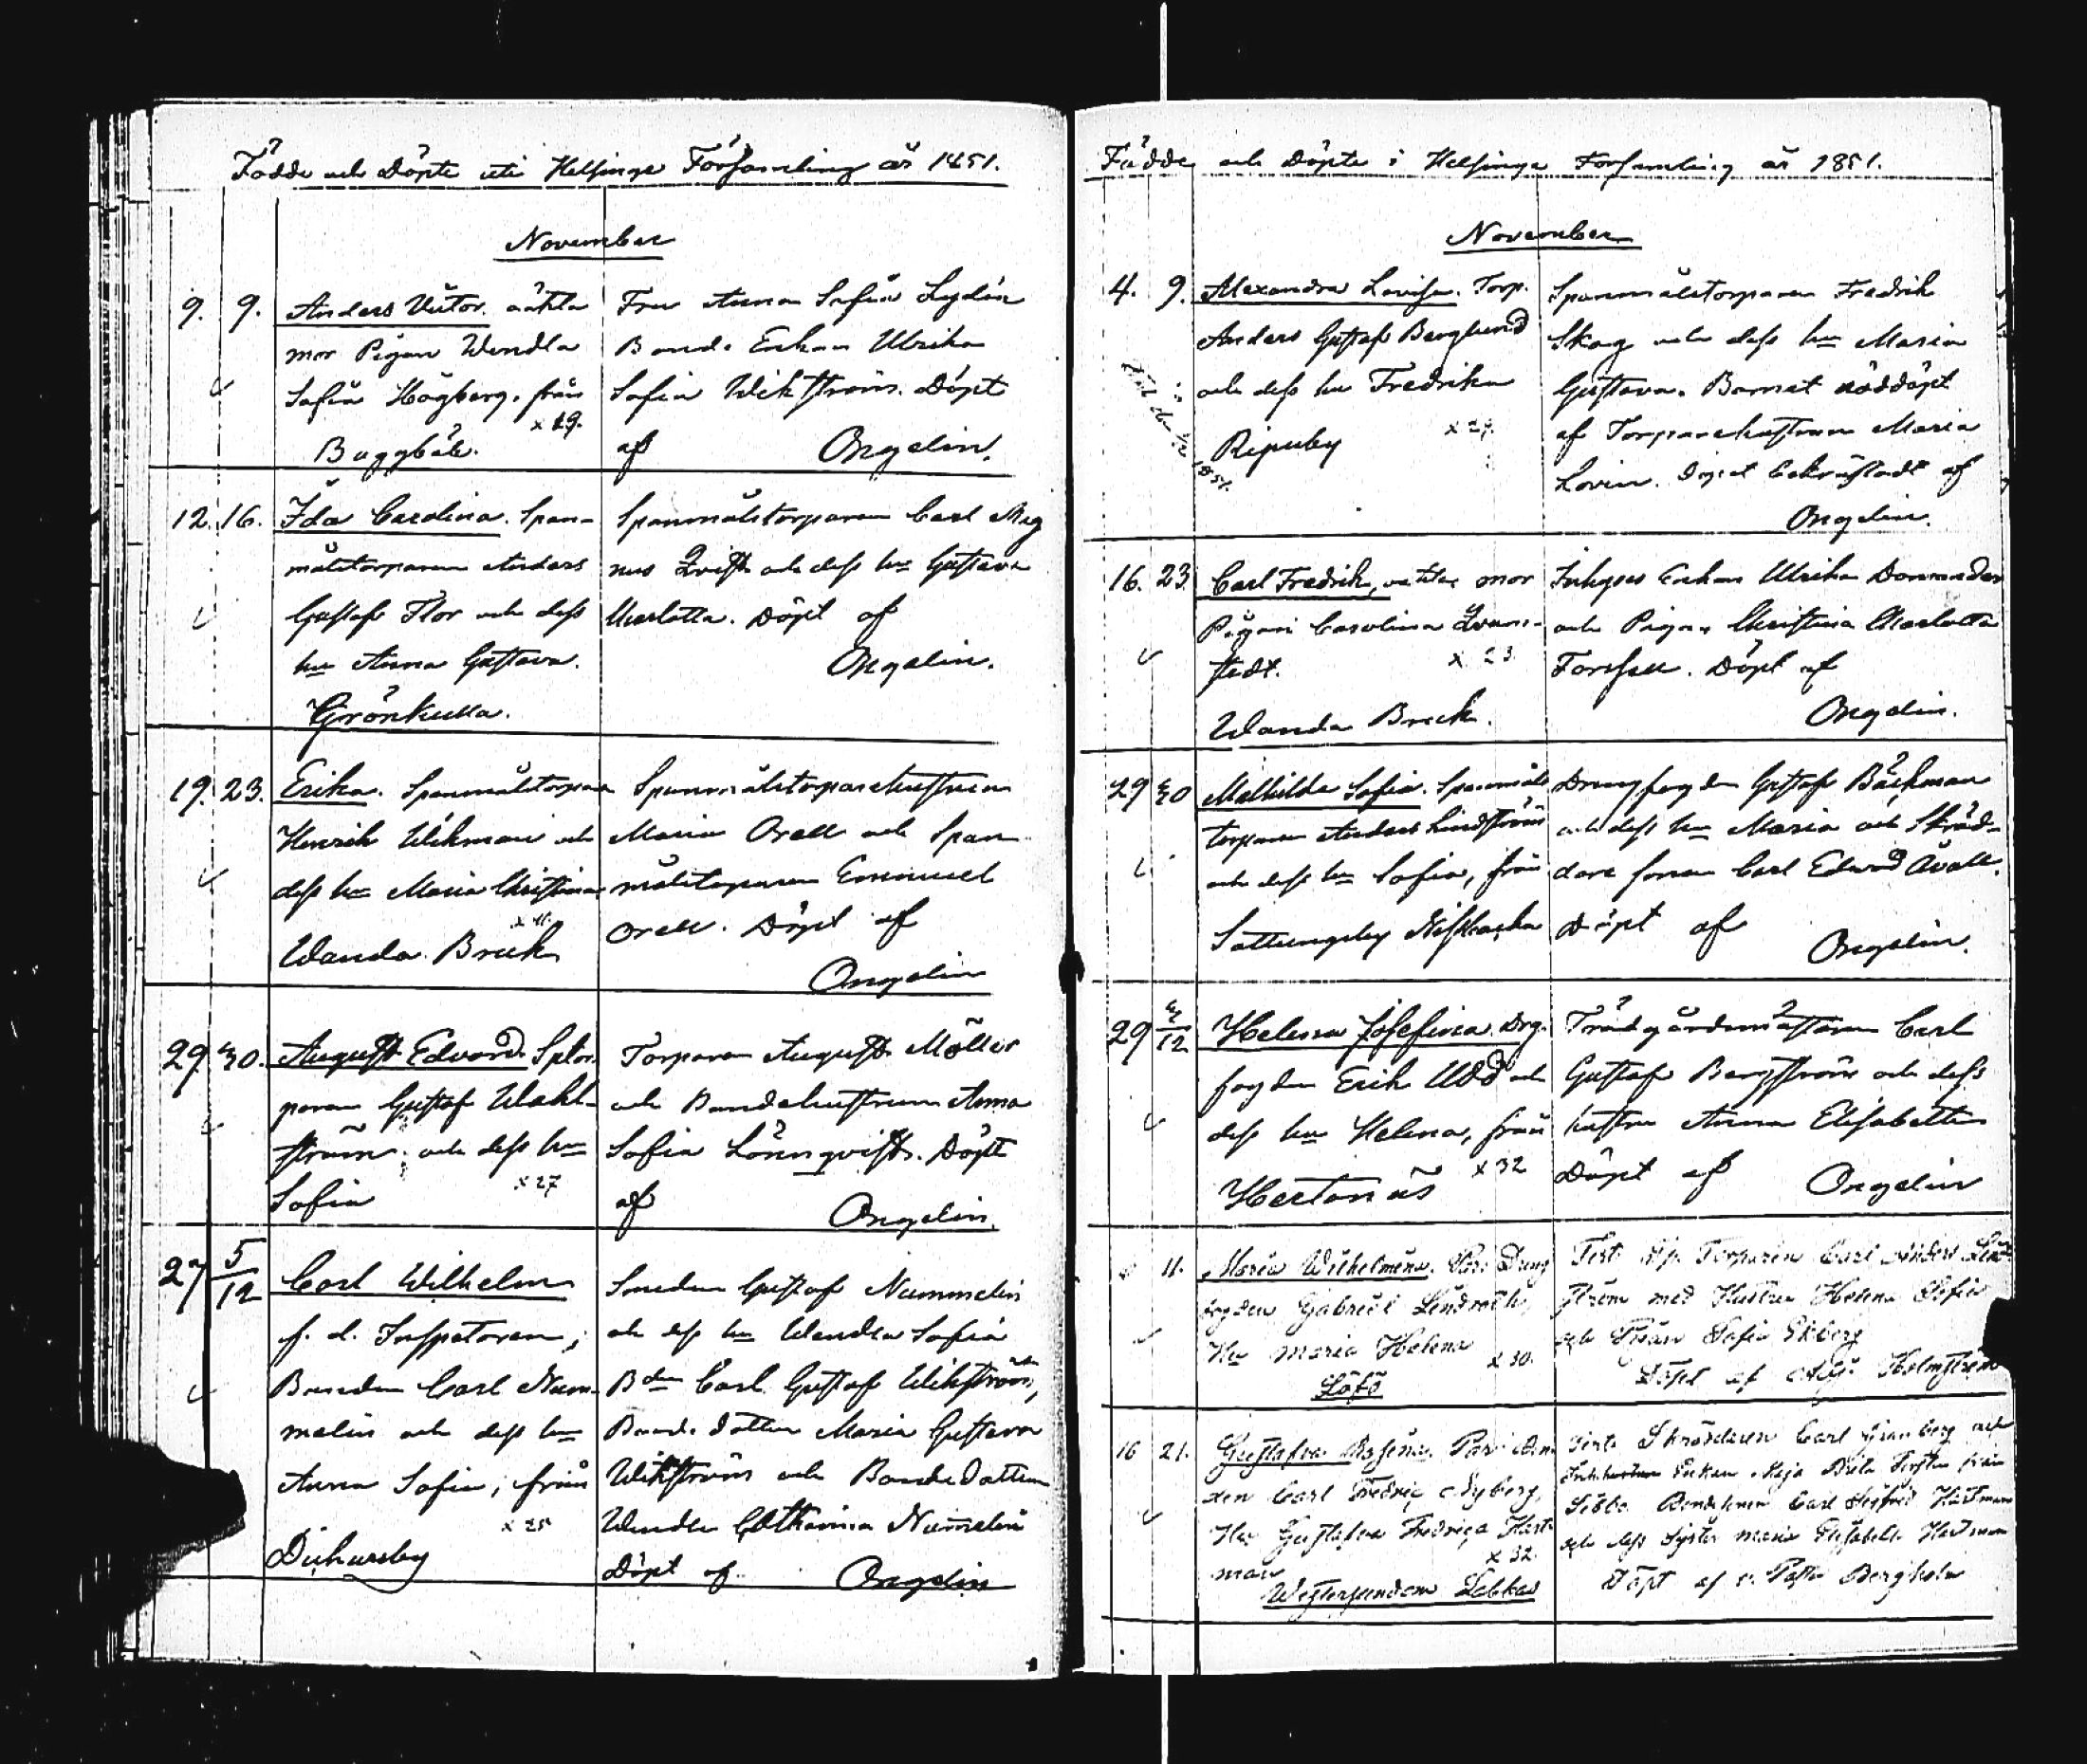 Födde och Döpte uti Helsinge Församling år 1851.
November
9. 9. Anders Victor. oäkta
mor Pigan Wendla
Sofia Högberg, från
x 29.
Baggböle.
Fru Anna Sofia Lydén
Bonde Enkan Ulrika
Sofia Wikström. Döpt
af Ongelin.
12. 16. Ida Carolina. Span-
målstorparen Anders
Gustaf Flor och dess
hu Anna Gustava.
Grönkulla.
Spanmålstorparen Carl Mag
nus Qvist och dess hu Gustava
Charlotta. Döpt af
Ongelin.
19. 23. Erika. Spanmålstorparen
Henrik Wikman och
dess hu Maria Christina
Wanda Bruk
Spanmålstorparehustrun
Maria Orell och Span
målstorparen Emanuel
Orell. Döpt af
Ongelin
29. 30. August Edvard. Sptor-
paren Gustaf Wahl-
ström och dess hu
Sofia x 27
Torparen August Möller
och Bondehustrun Anna
Sofia Lönnqvist. Döpt
af Ongelin.
27 5/12 Carl Wilhelm
f. d. Inspektoren,
Bonden Carl Num-
melin och dess hu
Anna Sofia, från
x 25
Dickursby
Smeden Gustaf Nummelin
och dess hu Wendla Sofia
Bdn Carl Gustaf Wikström,
Bonde dottern Maria Gustava
Wikström och Bondedottern
Wendla Catharina Nummelin
Döpt af Ongelin
Födde och Döpte i Helsinge Församling år 1851.
November
4. 9. Alexandra Lovisa. Torp.
Anders Gustaf Berglund
och dess hu Fredrika
x 27.
Ripuby
1851.
Spanmålstorparen Fredrik
Skog och dess hu Maria
Gustava. Barnet nöddöpt
af Torparehustrun Maria
Lovin. Dopet bekräftadt af
Ongelin.
16. 23. Carl Fredrik, oäkta, mor
Pigan Carolina Qvarn-
stedt. x 23.
Wanda Bruk.
Inhyses Enkan Ulrika
och Pigan Christina Charlotta
Forssell. Döpt af
Ongelin.
29 30 Mathilda Sofia. Spanmåls
torparen Anders Lindström
och dess hu Sofia, från
Sottungsby Nissbacka
Drengfogden Gustaf Bäckman
och dess hu Maria och Skräd-
dare sonen Carl Edvard Avall.
Döpt af
Ongelin.
29 2/12 Helena Josefina. Drg.
fogden Erik Udd och
dess hu Helena, från
x 32
Hertonäs
Trädgårdsmästaren Carl
Gustaf Bergström och dess
hustru Anna Elisabeth
Döpt af Ongelin
11. Maria Wilhelmina. Par: Dreng
fogden Gabriel Lindroth,
Hu Maria Helena
x 30.
Löfö
Test: Sp. Torparen Carl Anders Lind
ström med Hustru Helena Sofia
och Pigan Sofia Ekberg
Döpt af Adj. Holmström
16 21. Gustafva Rosina. Par:
Carl Fredric Nyberg,
Hu Gustafva Fredrica Hart-
man x 32.
Westersundom Labbas
Test: Skräddaren Carl Granberg och
Enkan Maja Brita från
Sibbo Bondesonen Carl Sigfrid Hartman
och dess Syster Maria Elisabeth Hartman
Döpt af v. Pastor Bergholm